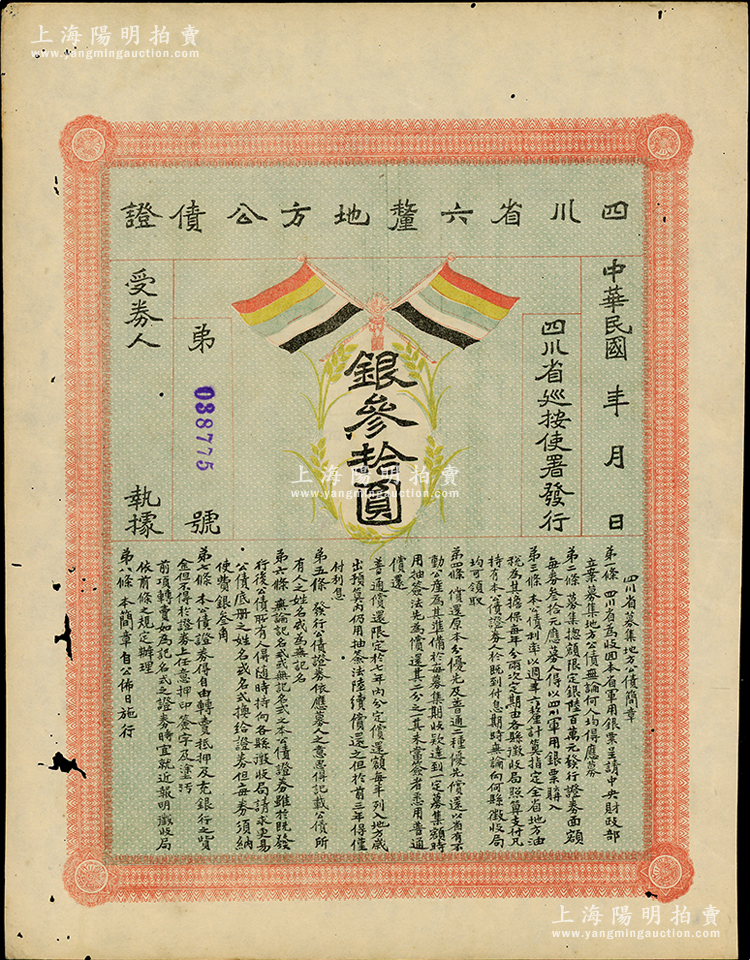 上海陽明拍賣
www.yangmingauction.com
四川省六釐地方公債證
中華民國 年 月 日
四川省巡按使署發行
銀參拾圓
第 038775 號
受券人 執據
四川省募集地方公債簡章
第一條 四川省為收回本省軍用銀票呈請中央財政部
立案募集地方公債無論何人均得應募
第二條 募集總額限定銀陸百萬元發行證券面額
每券叁拾元應募人得以四川軍用銀票購入
第三條 本公債利率以週年六釐計算指定全省地方油
稅為其擔保每年分兩次定期由各縣徵收局照算支付凡
持有本公債證券人於既到付息期時無論向何縣徵收局
均可領取
第四條 償還原本分優先及普通二種優先償還以省有不
動公產為其準備於每募集期收款達到一定募集額時
用抽簽法先為償還其二分之其未當簽者悉用普通
償還
普通償還限定於七年內分定償還額每年列入地方歲
出預算內仍用抽簽法陸續償還之但於首三年得僅
付利息
第五條 發行公債證券依應募人之意思得記載公債所
有人之姓名或為無記名
第六條 無論記名式或無記名式之本公債證券雖於既發
行後公債所有人得隨時持向各縣徵收局請求更易
公債底冊之姓名或名式換給證券但每券須納
使費銀叁角
第七條 本公債證券得自由轉賣抵押及充銀行之貲
金但不得於證券上任意押印簽字及塗污
前項轉賣如為記名式之證券時宜就近報明徵收局
依前條之規定辦理
第八條 本簡章自公佈日施行
上海陽明拍賣
www.yangmingauction.com
上海陽明拍賣
www.yangmingauction.com